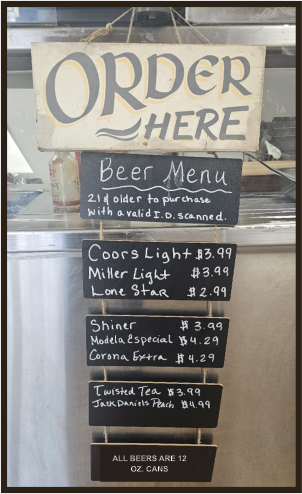 ORDER
HERE
Beer Menu
21 & older to purchase
with a valid I.D. scanned.
Coors Light $3.99
Miller Light $3.99
Lone Star $2.99
Shiner $3.99
Modela Especial $4.29
Corona Extra $4.29
Twisted Tea $3.99
Jack Daniels Peach $4.99
ALL BEERS ARE 12
OZ. CANS